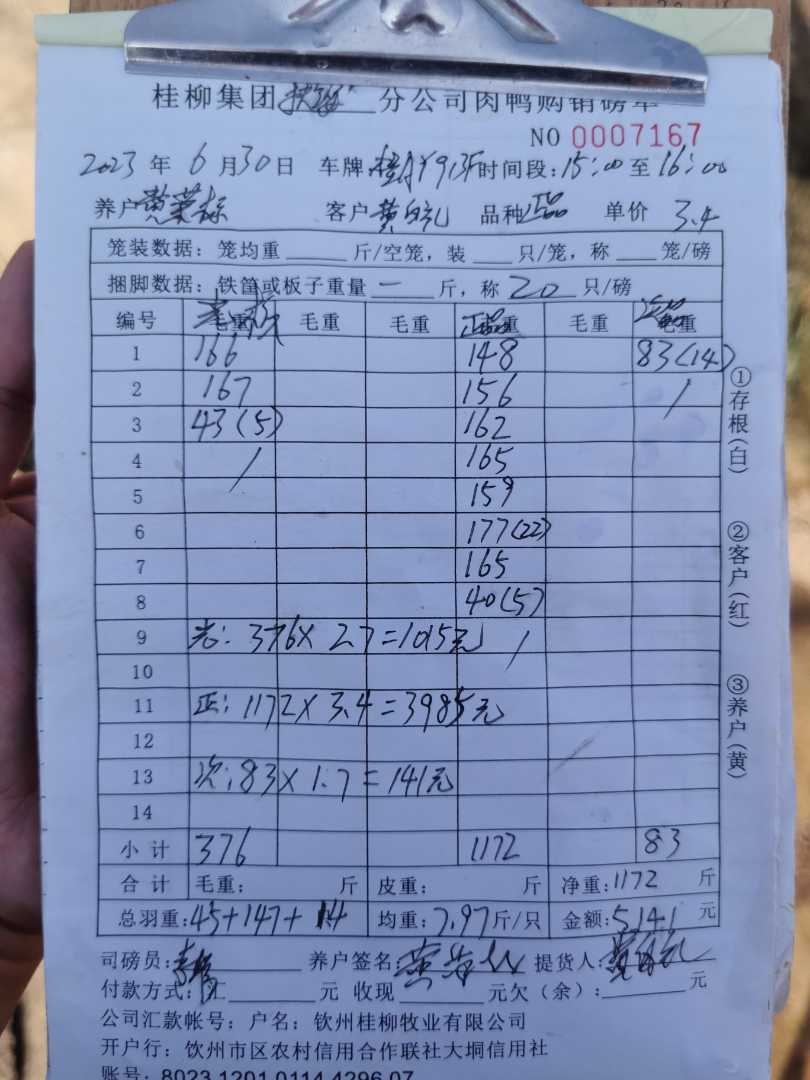 桂柳集团 分公司肉鸭购销磅单
NO 0007167
2023年6月30日 车牌: 时间段:15:00至16:00
养户 黄荣标 客户 品种 正品 单价 3.4
笼装数据: 笼均重 斤/空笼, 装 只/笼, 称 笼/磅
捆脚数据: 铁筐或板子重量 一 斤, 称 20 只/磅
编号 毛重 毛重 毛重 正品 毛重 毛重 毛重
1 166 148 83(14)
2 167 156 /
3 43(5) 162
4 / 165
5 159
6 177(22)
7 165
8 40(5)
9 光: 376×2.7=1015元 /
10
11 正: 1172×3.4=3985元
12
13 次: 83×1.7=141元
14
小计 376 1172 83
合计 毛重: 斤 皮重: 斤 净重: 1172 斤
总羽重: 45+147+14 均重: 7.97斤/只 金额: 5141 元
司磅员: 养户签名: 提货人:
付款方式: 汇 元 收现 元欠(余): 元
公司汇款帐号: 户名: 钦州桂柳牧业有限公司
开户行: 钦州市区农村信用合作联社大垌信用社
账号: 8023 1201 0114 4296 07
①存根(白)
②客户(红)
③养户(黄)